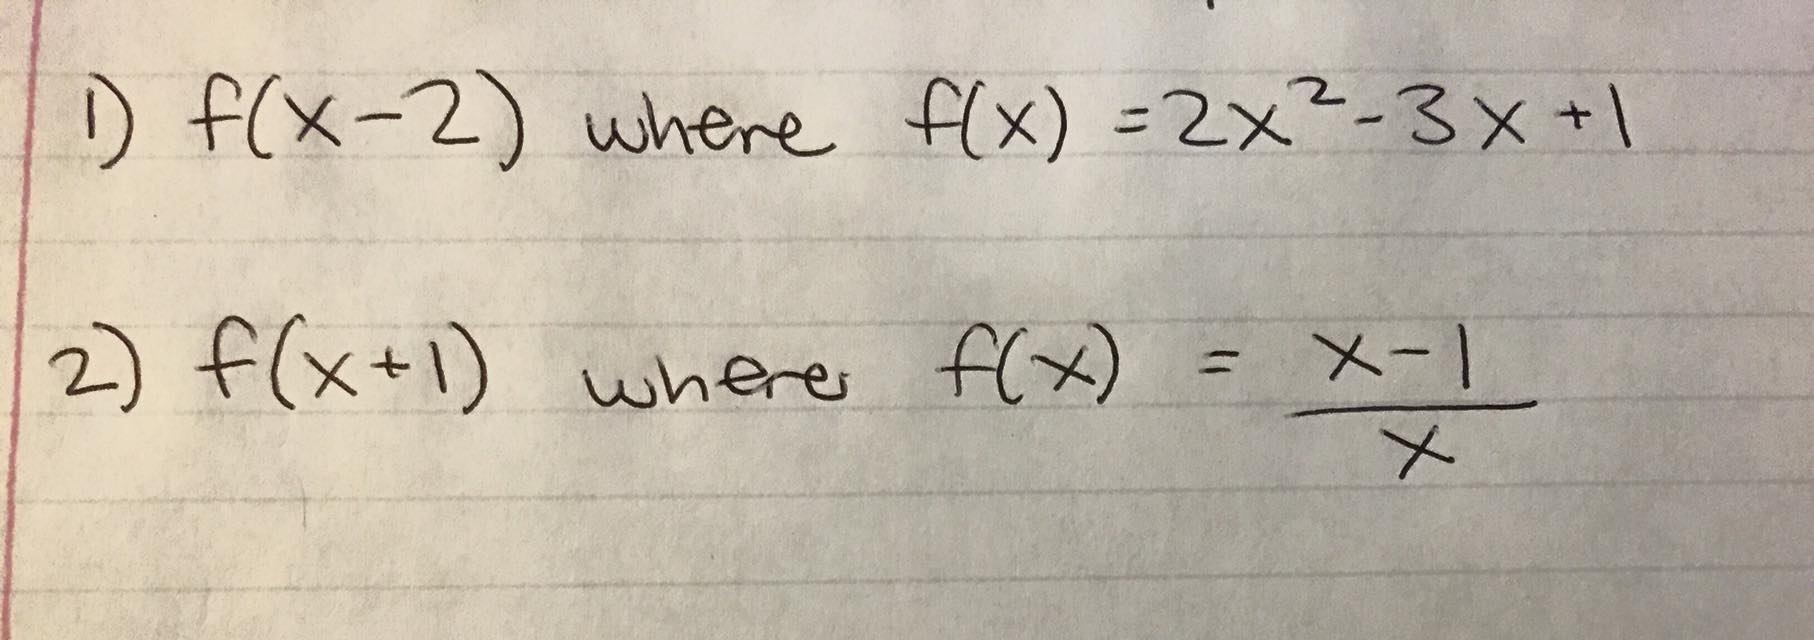 1) f(x-2) where f(x) = 2x² - 3x + 1
2) f(x+1) where f(x) = (x-1)/x